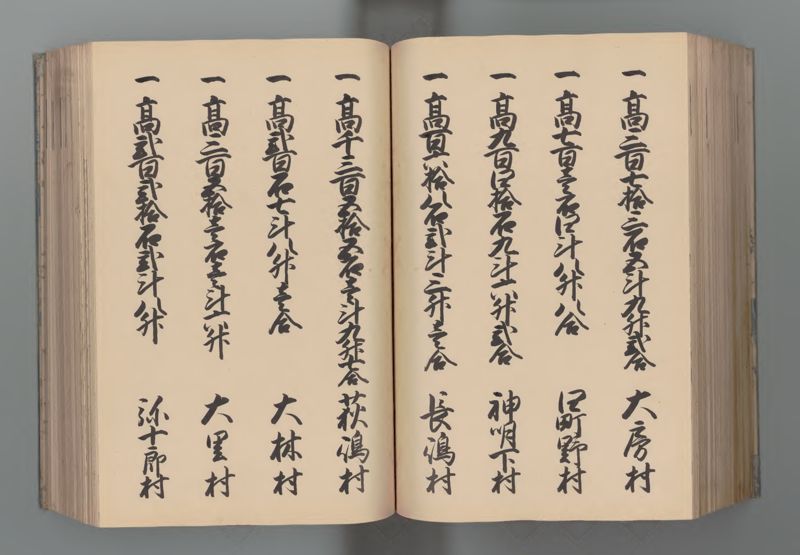 一髙三百七拾三石五斗九升弐合 大房村
一髙七百壱石四斗八升八合 四町野村
一髙九百四拾石九斗六升弐合 神明下村
一髙百六拾八石弐斗三升壱合 長嶋村
一髙千三百五拾五石壱斗九升七合 荻嶋村
一髙弐百石七斗八升壱合 大林村
一髙三百五拾壱石壱斗六升 大里村
一髙弐百弐拾石弐斗八升 弥十郎村